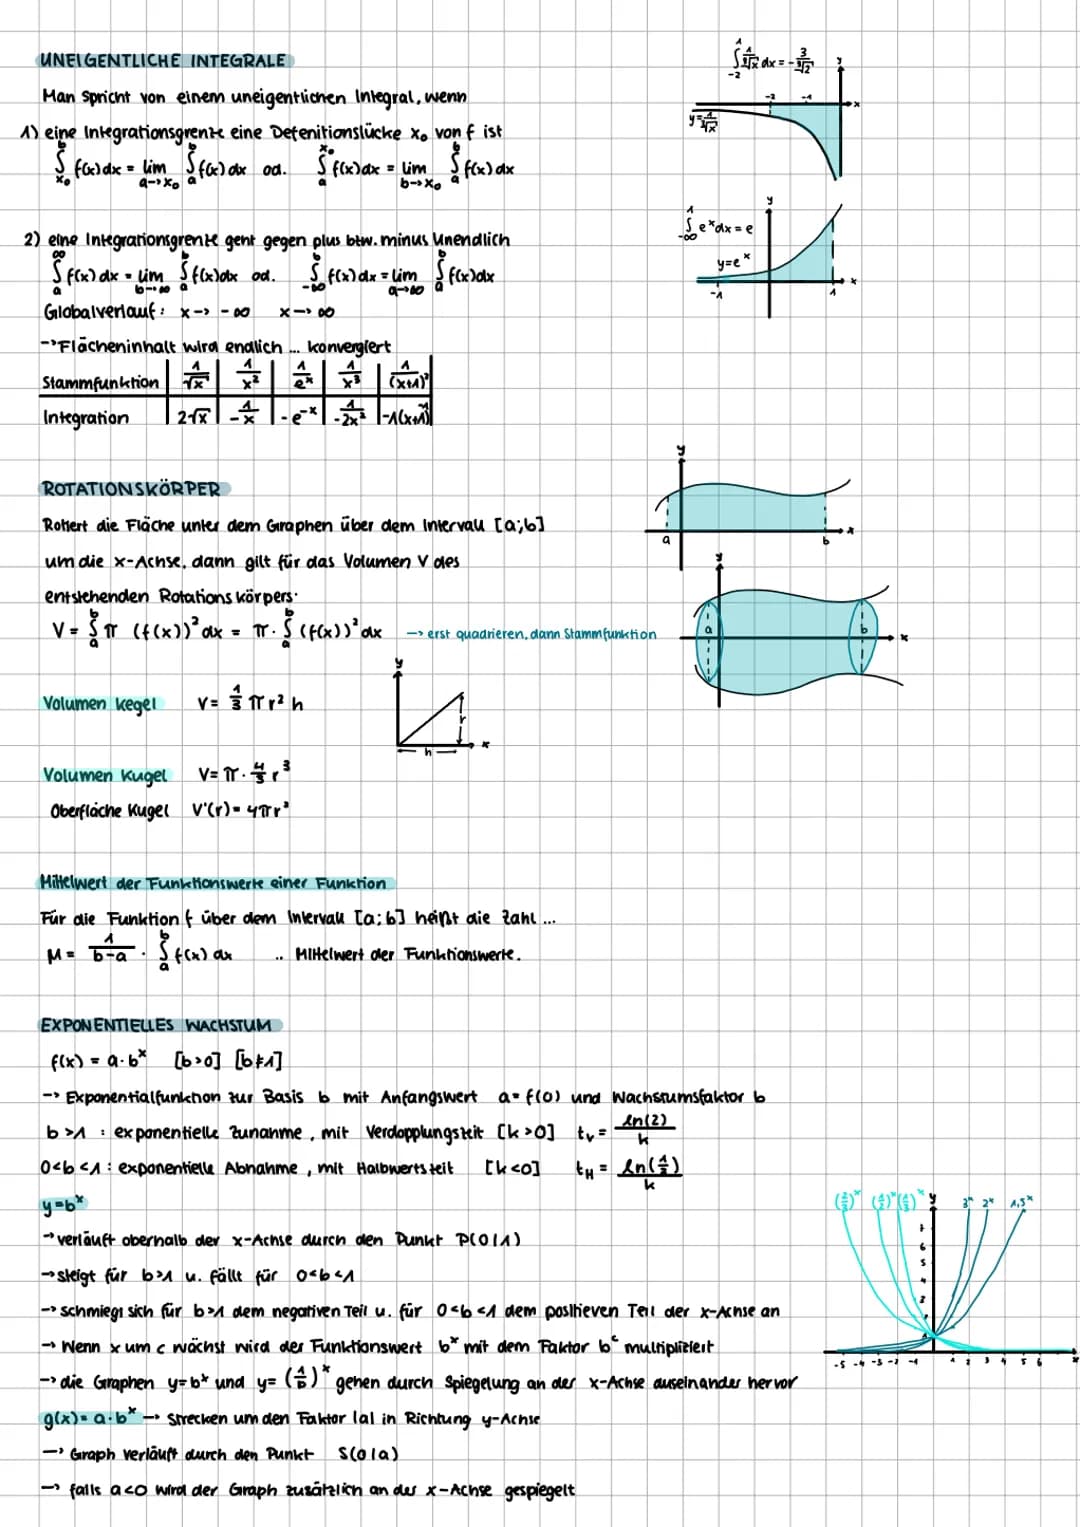 UNEIGENTLICHE INTEGRALE
Man spricht von einem uneigentlichen Integral, wenn
1) eine Integrationsgrenze eine Defenitionslücke x₀ von f ist
∫_{x₀}^{b} f(x) dx = lim_{a→x₀} ∫_{a}^{b} f(x) dx od. ∫_{a}^{x₀} f(x) dx = lim_{b→x₀} ∫_{a}^{b} f(x) dx
2) eine Integrationsgrenze geht gegen plus bzw. minus Unendlich
∫_{a}^{∞} f(x) dx = lim_{b→∞} ∫_{a}^{b} f(x) dx od. ∫_{-∞}^{b} f(x) dx = lim_{a→∞} ∫_{a}^{b} f(x) dx
Globalverlauf: x → -∞ x → ∞
→ Flächeninhalt wird endlich ... konvergiert
Stammfunktion | 1/√x | 1/x² | 1/eˣ | 1/x³ | 1/(x+1)²
Integration | 2√x | -1/x | -e⁻ˣ | 1/-2x² | -1(x+1)⁻¹
y = 1/∛x
-2 -1 x y
∫_{-∞}^{1} eˣ dx = e
y = eˣ
-1 1 x y
ROTATIONSKÖRPER
Rotiert die Fläche unter dem Graphen über dem Intervall [a;b]
um die x-Achse, dann gilt für das Volumen V des
entstehenden Rotationskörpers:
V = ∫_{a}^{b} π (f(x))² dx = π · ∫_{a}^{b} (f(x))² dx → erst quadrieren, dann Stammfunktion
a b x y
a b x y
Volumen Kegel V = 1/3 π r² h
y r h x
Volumen Kugel V = π · 4/3 r³
Oberfläche Kugel V'(r) = 4πr²
Mittelwert der Funktionswerte einer Funktion
Für die Funktion f über dem Intervall [a;b] heißt die Zahl ...
M = 1/(b-a) · ∫_{a}^{b} f(x) dx .. Mittelwert der Funktionswerte.
EXPONENTIELLES WACHSTUM
f(x) = a·bˣ [b>0] [b≠1]
→ Exponentialfunktion zur Basis b mit Anfangswert a = f(0) und Wachstumsfaktor b
b>1 : exponentielle Zunahme, mit Verdopplungszeit [k>0] t_V = ln(2)/k
0<b<1 : exponentielle Abnahme, mit Halbwertszeit [k<0] t_H = ln(1/2)/k
y = bˣ
→ verläuft oberhalb der x-Achse durch den Punkt P(0|1)
→ steigt für b>1 u. fällt für 0<b<1
→ schmiegt sich für b>1 dem negativen Teil u. für 0<b<1 dem positieven Teil der x-Achse an
→ Wenn x um c wächst wird der Funktionswert bˣ mit dem Faktor bᶜ multipliziert
→ die Graphen y=bˣ und y=(1/b)ˣ gehen durch Spiegelung an der x-Achse auseinander hervor
g(x) = a·bˣ → Strecken um den Faktor |a| in Richtung y-Achse
→ Graph verläuft durch den Punkt S(0|a)
→ falls a<0 wird der Graph zusätzlich an der x-Achse gespiegelt
y 3ˣ 2ˣ 1,5ˣ
-5 -4 -3 -2 -1 1 2 3 4 5 6